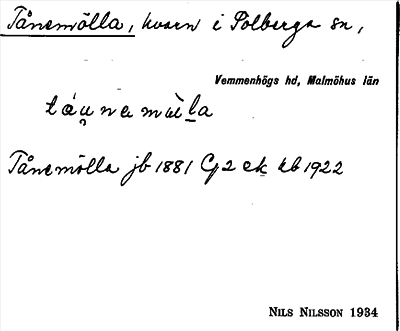 Tånemölla, kvarn i Solberga sn,
Vemmenhögs hd, Malmöhus län
Tånemölla jb 1881 G2 ek kb 1922
NILS NILSSON 1934